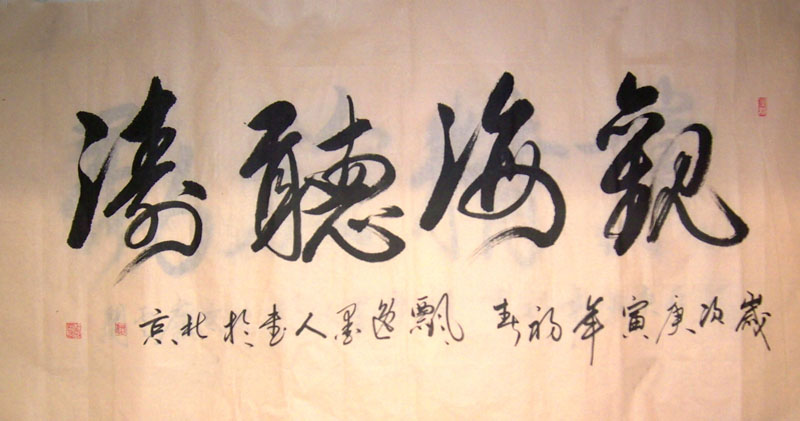 觀海聽濤
歲次庚寅年初春 飄逸墨人书於北京